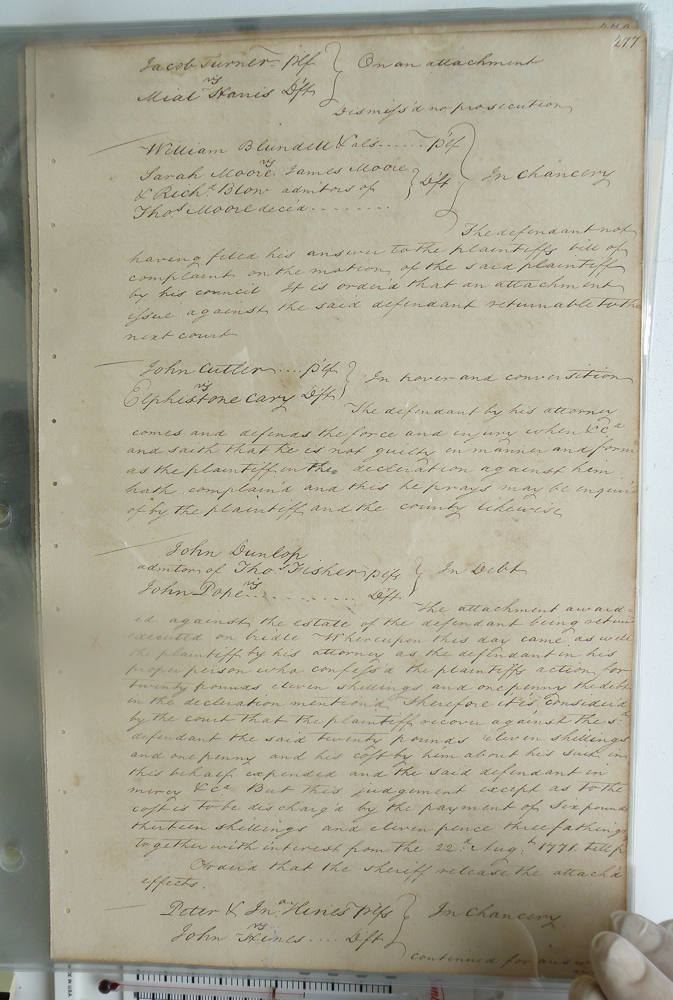 277
Jacob Turner plf } On an attachment
vs
Mial Haris Dft }
Dismiss'd no prosecution
William Blundell & als...... plf
vs
Sarah Moore James Moore
& Richd Blow admitors of } Dft } In Chancery
Thos Moore decd.........
The defendant not
having filed his answer to the plaintiffs bill of
complaint on the motion of the said plaintiff
by his council It is orderd that an attachment
issue against the said defendant returnable to the
next court
John Cutler .... plf } In trover and conversition
vs
Elphistone Cary Dft }
The defendant by his attorney
comes and defends the force and injury when &ca
and saith that he is not guilty in manner and form
as the plaintiff in the decleration against him
hath complain'd and this he prays may be inquir'd
of by the plaintiff and the county likewise
John Dunlop
admtor of Thos Fisher plfs } In Debt
vs
John Pope............ Dft }
The attachment award=
ed against the estate of the defendant being return
executed on bridle Whereupon this day came as well
the plaintiff by his attorney as the defendant in his
proper person who confess'd the plaintiffs action for
twenty pounds eleven shillings and one penny the debt
in the decleration mention'd Therefore it is consider'd
by the court that the plaintiff recover against the sd
defendant the said twenty pounds eleven shillings
and one penny and his cost by him about his suit in
this behalf expended and the said defendant in
mercy &ca But this judgement except as to the
cost is to be discharg'd by the payment of six pounds
thirteen shillings and eleven pence three fathings
together with interest from the 22d Augt 1771 till p
Orderd that the sheriff release the attach'd
effects.
Peter & Jna Hines plfs } In Chancery
vs
John Hines .... Dft }
continued for answ
MADE IN U.S.A.